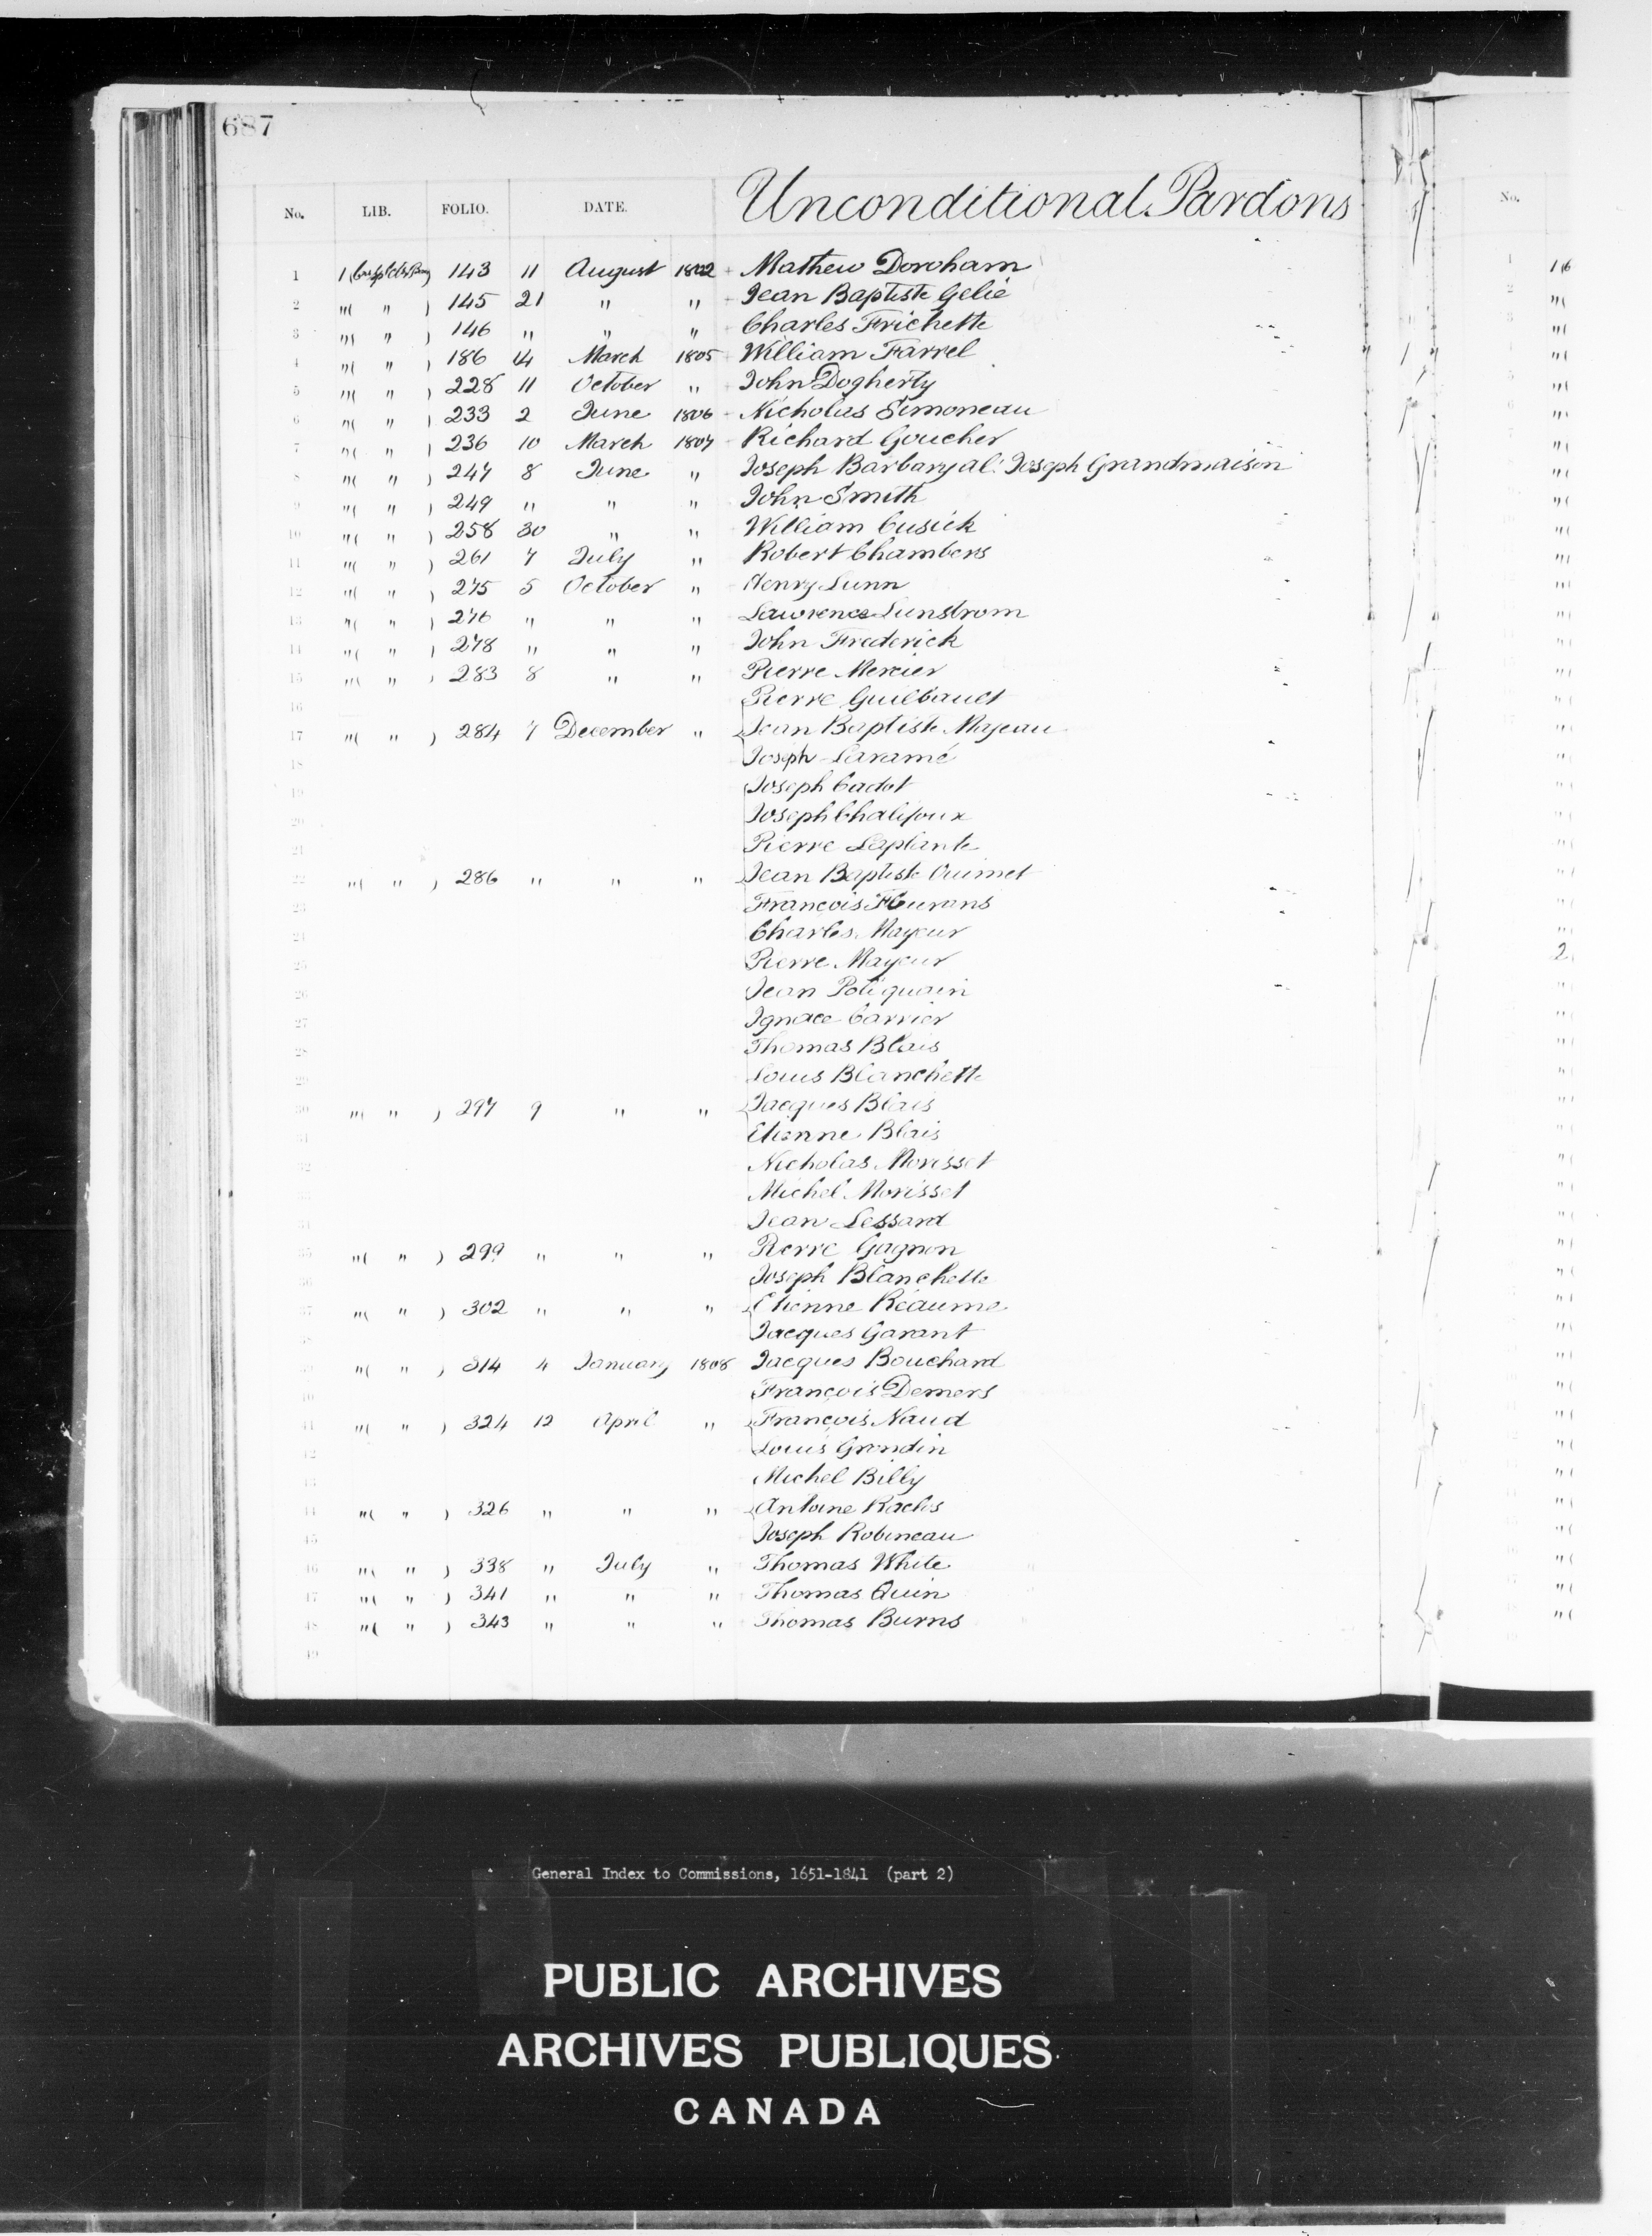 687
No. LIB. FOLIO. DATE. Unconditional Pardons No.
1 1 ( ) 143 11 August 1802 Mathew Doroham
2 "( " ) 145 21 " " Jean Baptiste Gelié
3 "( " ) 146 " " " Charles Frichette
4 "( " ) 186 14 March 1805 William Farrel
5 "( " ) 228 11 October " John Dogherty
6 "( " ) 233 2 June 1806 Nicholas Simoneau
7 "( " ) 236 10 March 1807 Richard Goucher
8 "( " ) 247 8 June " Joseph Barbary al: Joseph Grandmaison
9 "( " ) 249 " " " John Smith
10 "( " ) 258 30 " " William Cusick
11 "( " ) 261 7 July " Robert Chambers
12 "( " ) 275 5 October " Henry Lunn
13 "( " ) 276 " " " Lawrence Lunstrom
14 "( " ) 278 " " " John Frederick
15 "( " ) 283 8 " " Pierre Mercier
16 Pierre Guilbault
17 "( " ) 284 7 December " Jean Baptiste Mayeau
18 Joseph Laramé
19 Joseph Cadot
20 Joseph Chalifoux
21 Pierre Laplante
22 "( " ) 286 " " " Jean Baptiste Ouimet
23 François Flurans
24 Charles Mayeur
25 Pierre Mayeur
26 Jean Potiquain
27 Ignace Carrier
28 Thomas Blais
29 Louis Blanchette
30 "( " ) 297 9 " " Jacques Blais
31 Etienne Blais
32 Nicholas Morisset
33 Michel Morisset
34 Jean Lessard
35 "( " ) 299 " " " Pierre Gagnon
36 Joseph Blanchette
37 "( " ) 302 " " " Etienne Réaume
38 Jacques Garant
39 "( " ) 314 4 January 1808 Jacques Bouchard
40 François Demers
41 "( " ) 324 12 April " François Naud
42 Louis Grondin
43 Michel Billy
44 "( " ) 326 " " " Antoine Raclos
45 Joseph Robineau
46 "( " ) 338 " July " Thomas White
47 "( " ) 341 " " " Thomas Quin
48 "( " ) 343 " " " Thomas Burns
49
General Index to Commissions, 1651-1841 (part 2)
PUBLIC ARCHIVES
ARCHIVES PUBLIQUES
CANADA